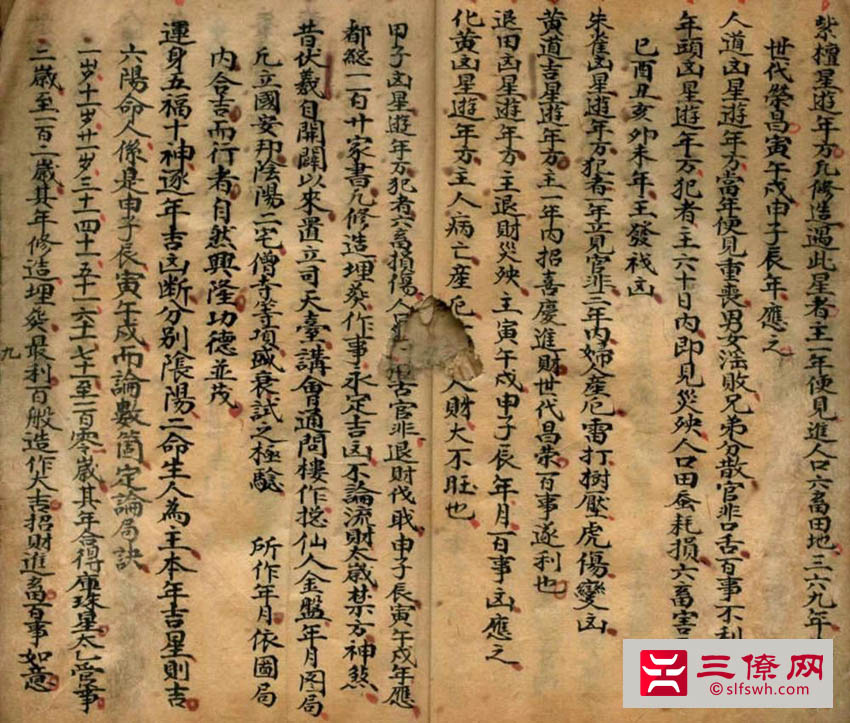 紫檀星遊年方凡修造遇此星者主一年便見進人口六畜田地三六九年
世代榮昌寅午戌申子辰年應之
人道凶星遊年方當年便見重喪男女淫敗兄弟分散官非口舌百事不利
年頭凶星遊年方犯者主六十日內即見災殃人口田蚕耗損六畜
巳酉丑亥卯未年主發禍凶
朱雀凶星遊年方犯者一年立見官非三年內婦人産厄雷打樹壓虎傷變凶
黃道吉星遊年方主一年內招喜慶進財世代昌榮百事遂利也
退田凶星遊年方主退財災殃主寅午戌申子辰年月百事凶應之
化黃凶星遊年方主人病亡産厄人財大不旺也
甲子凶星遊年方犯者六畜損傷人口舌官非退財伐戝申子辰寅午戌年應
都總一百廿家書凡修造埋葬作事永定吉凶不論流財太歲禁方神煞
昔伏羲自開闢以來置立司天臺講會通問樓作捴仙人金盤年月圖局
凡立國安邦陰陽二宅僧寺等項盛衰試之極驗 所作年月依圖局
內合吉而行者自然興隆功德並茂
運身五福十神逐年吉凶斷分別陰陽二命生人為主本年吉星則吉
六陽命人係是申子辰寅午戌而論數箇定論局訣
一岁十一岁廿一岁三十一四十一五十一六十一七十一至一百零歲其年合得庫珠星太乙管事
二歲至一百二歲其年修造埋葬最利百般造作大吉招財進畜百事如意
九
三僚网
slfswh.com